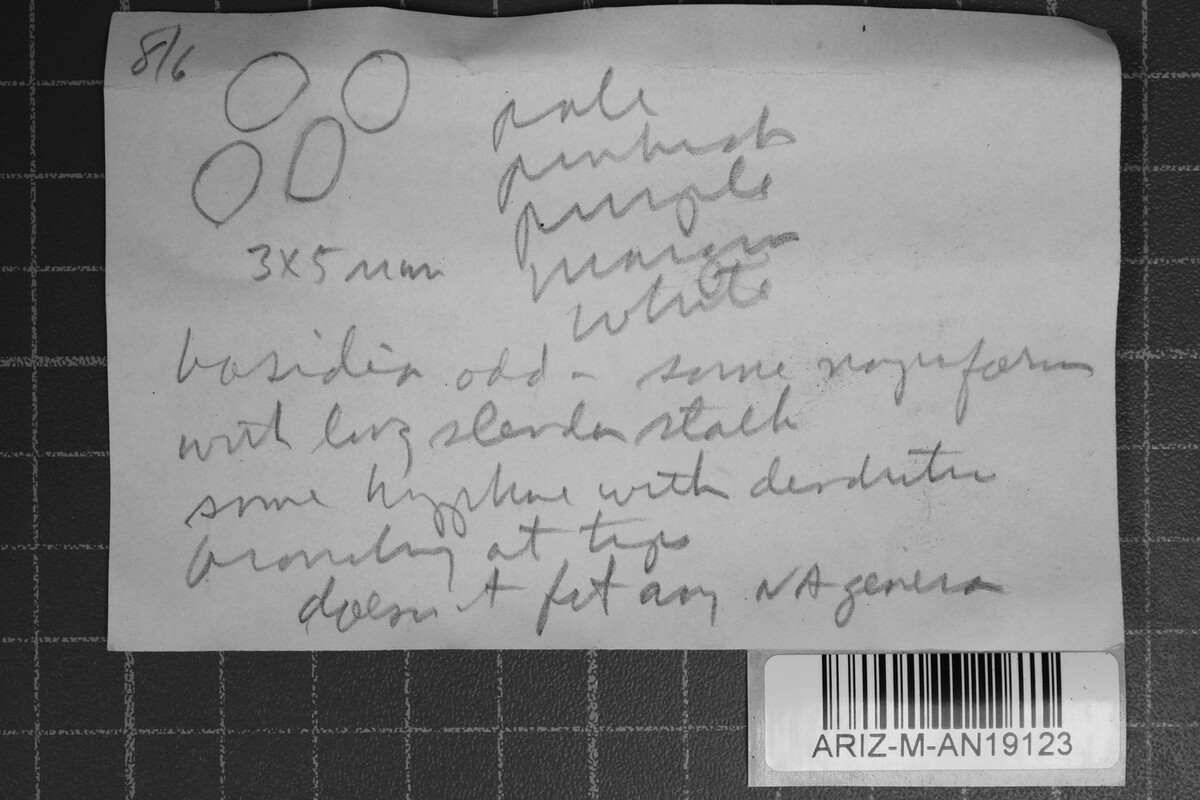 8/6
pale
pinkish
purple
margin
white
3x5 mm
basidia odd - some napiform
with long slender stalk
some hyphae with dendritic
branching at tips
doesn't fit any NA genera
ARIZ-M-AN19123